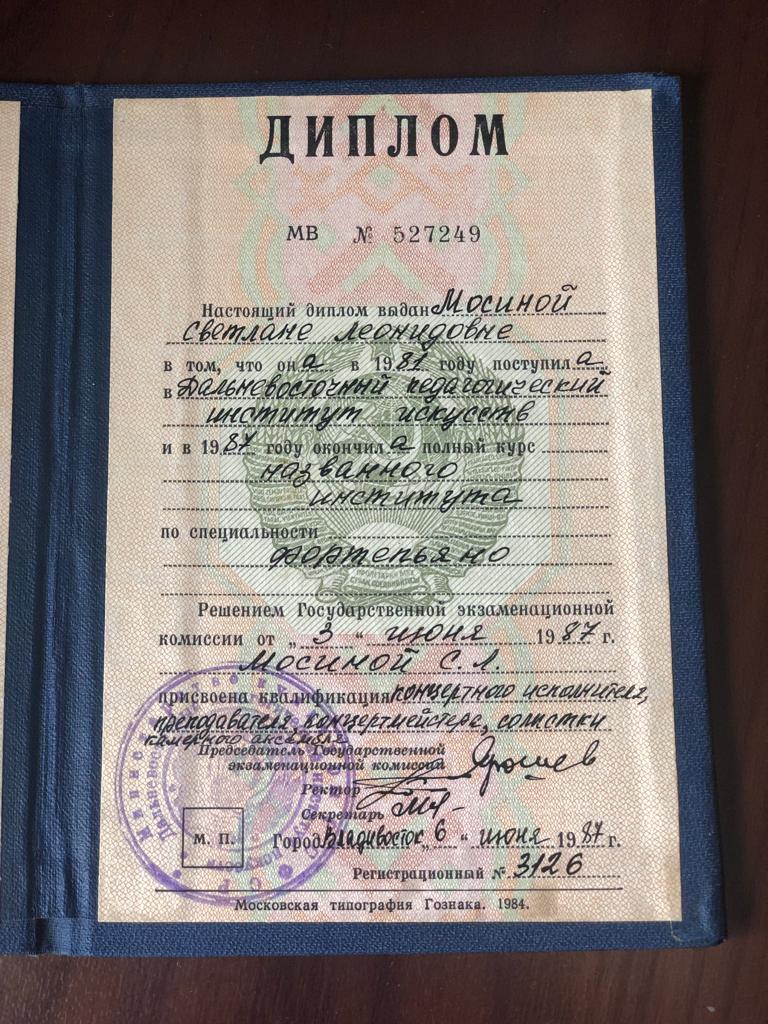 ДИПЛОМ
МВ № 527249
Настоящий диплом выдан Мосиной
Светлане Леонидовне
в том, что она в 1981 году поступила
в Дальневосточный педагогический
институт искусств
и в 1987 году окончила полный курс
названного
института
по специальности
фортепьяно
Решением Государственной экзаменационной
комиссии от „3“ июня 1987 г.
Мосиной С. Л.
присвоена квалификация концертного исполнителя,
преподавателя, концертмейстера, солистки
камерного ансамбля
Председатель Государственной
экзаменационной комиссии
Ректор
Секретарь
М. П.
Город Владивосток „6“ июня 1987 г.
Регистрационный № 3126
Московская типография Гознака. 1984.